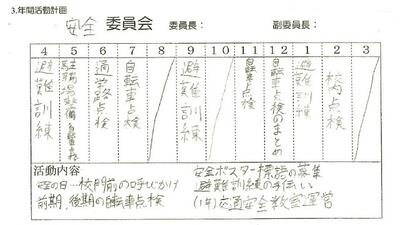 3.年間活動計画
安全 委員会 委員長： 副委員長：
4 5 6 7 8 9 10 11 12 1 2 3
避難訓練
駐輪場整備
通学路点検
自転車点検
避難訓練
自転車点検
自転車点検のまとめ
避難訓練
校内点検
活動内容
の日…校門前の呼びかけ
前期、後期の自転車点検
安全ポスター標語の募集
避難訓練の手伝い
(1年)交通安全教室運営